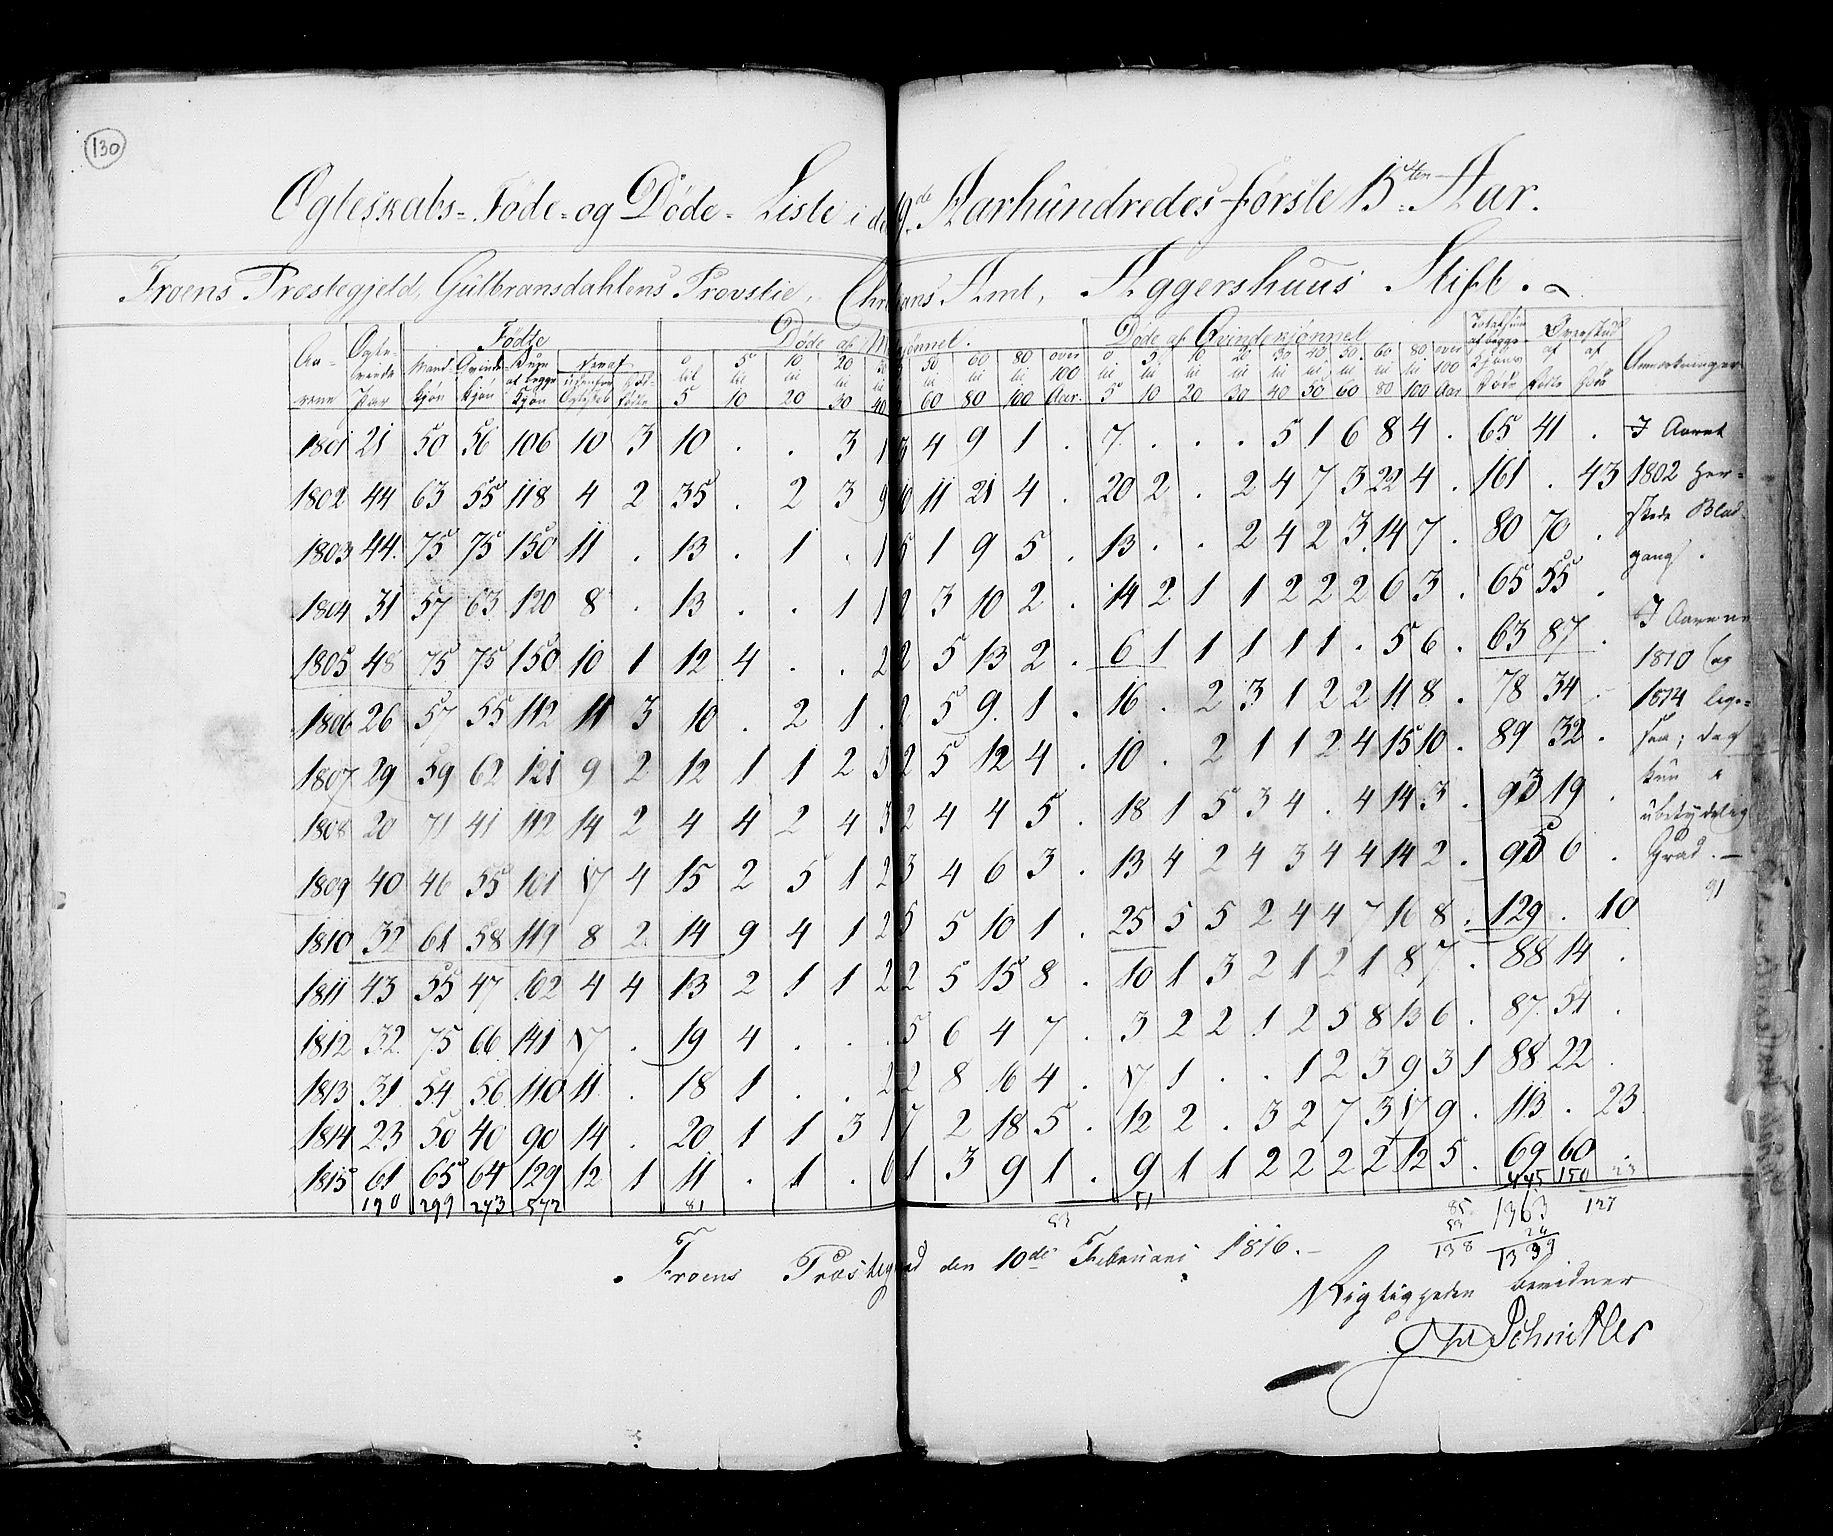 130
Ægteskabs-Føde-og Døde-Liste i det 19de Aarhundredes første 15ten Aar.
Froens Præstegjeld, Gulbransdahlens Provstie, Christians Amt, Aggershuus Stift.
Fødte Døde af Mandkjønnet. Døde af Qvindekjønnet Totalsum af begge Kjøns Døde Overskud af Fødte af Døde Anmærkninger
Aarene Ægteviede Par Mandkjøn Qvindekjøn Sum af begge Kjøn Deraf Udenfor Ægteskab Dødfødte
0 til 5 5 til 10 10 til 20 20 til 30 30 40 50 til 60 60 til 80 80 til 100 over 100 Aar. 0 til 5 5 til 10 10 til 20 20 til 30 30 til 40 40 til 50 50 til 60 60 til 80 80 til 100 over 100 Aar
1801 21 50 56 106 10 3 10 . . 3 1 3 4 9 1 . 7 . . . 5 1 6 8 4 . 65 41 . I Aaret
1802 44 63 55 118 4 2 35 . 2 3 9 10 11 21 4 . 20 2 . 2 4 7 3 22 4 . 161 . 43 1802 her-
1803 44 75 75 150 11 . 13 . 1 . 1 5 1 9 5 . 13 . . 2 4 2 3 14 7 . 80 70 . skede Blod-
gang.
1804 31 57 63 120 8 . 13 . . 1 1 2 3 10 2 . 14 2 1 1 2 2 2 6 3 . 65 55 .
1805 48 75 75 150 10 1 12 4 . . 2 2 5 13 2 . 6 1 1 1 1 1 . 5 6 . 63 87 . I Aarene
1810 og
1806 26 57 55 112 11 3 10 . 2 1 . 2 5 9 1 . 16 . 2 3 1 2 2 11 8 . 78 34 . 1814 lige-
1807 29 59 62 121 9 2 12 1 1 2 5 2 5 12 4 . 10 . 2 1 1 2 4 15 10 . 89 32 . saa; dog
kun i
1808 20 71 41 112 14 2 4 4 2 4 3 2 4 4 5 . 18 1 5 3 4 . 4 14 3 . 93 19 . ubetydelig
1809 40 46 55 101 17 4 15 2 5 1 2 3 4 6 3 . 13 4 2 4 3 4 4 14 2 . 95 6 . Grad. —
91
1810 32 61 58 119 8 2 14 9 4 1 2 5 5 10 1 . 25 5 5 2 4 4 7 16 8 . 129 . 10
1811 43 55 47 102 4 4 13 2 1 1 2 2 5 15 8 . 10 1 3 2 1 2 1 8 7 . 88 14 .
1812 32 75 66 141 17 . 19 4 . . . 5 6 4 7 . 3 2 2 1 2 5 8 13 6 . 87 54 .
1813 31 54 56 110 11 . 18 1 . . 2 2 8 16 4 . 17 1 . . 1 2 3 9 3 1 88 22 .
1814 23 50 40 90 14 . 20 1 1 3 1 7 2 18 5 . 12 2 . 3 2 7 3 17 9 . 113 . 23
1815 61 65 64 129 12 1 11 . 1 . 6 1 3 9 1 . 9 1 1 2 2 2 2 12 5 . 69 60 .
190 299 273 572 81 53 51 445 150 23
85 1363 127
53 26
138 1389
Froens Præstegaard den 10de Februari 1816.
Rigtigheden bevidner
Schnitler